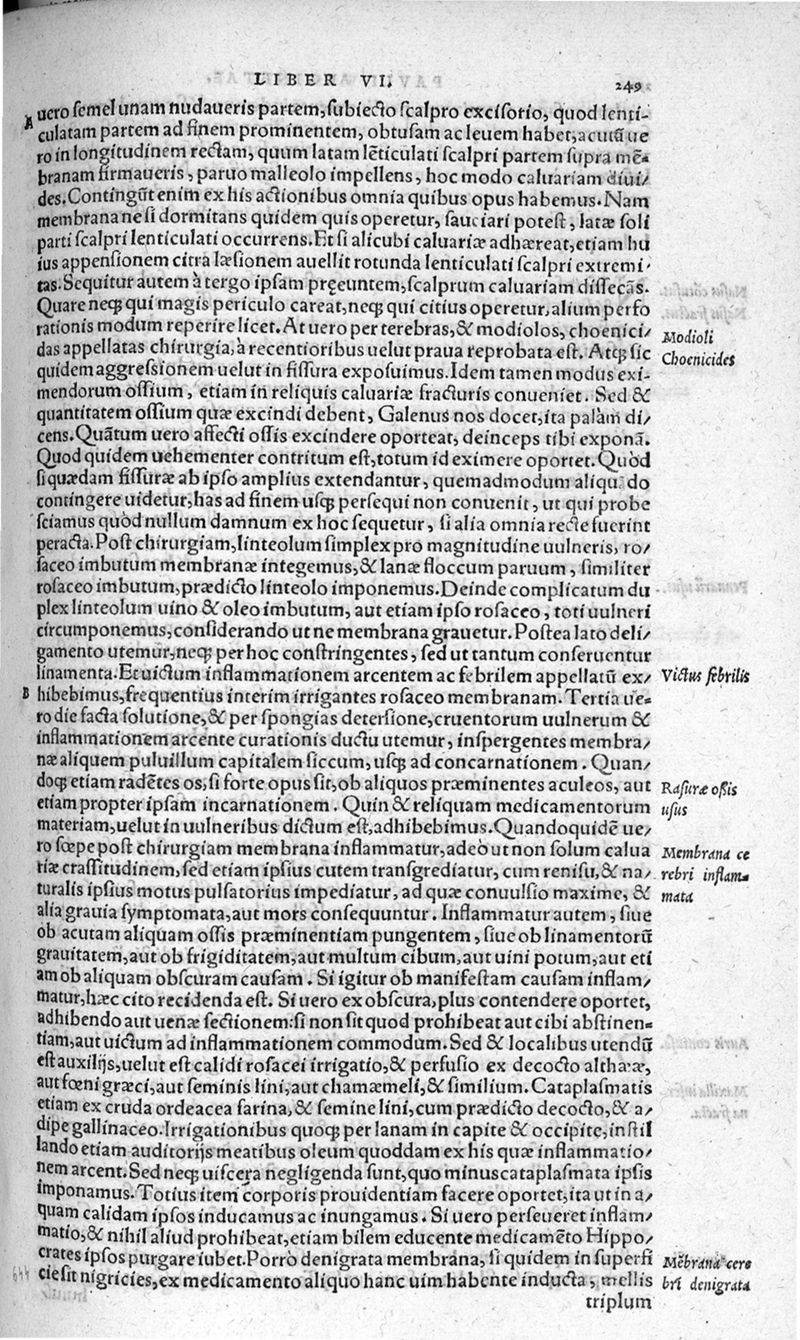 LIBER VI.
249
uero semel unam nudaueris partem, subiecto scalpro excisorio, quod lenti-
A
culatam partem ad finem prominentem, obtusam ac leuem habet, acutā ue
ro in longitudinem rectam, quum latam lēticulati scalpri partem supra mē-
branam firmaueris, paruo malleolo impellens, hoc modo caluariam diui/
des. Contingūt enim ex his actionibus omnia quibus opus habemus. Nam
membrana ne si dormitans quidem quis operetur, sauciari potest, latæ soli
parti scalpri lenticulati occurrens. Et si alicubi caluariæ adhæreat, etiam hu
ius appensionem citra læsionem auellit rotunda lenticulati scalpri extremi-
tas. Sequitur autem à tergo ipsam pręeuntem, scalprum caluariam dissecās.
Quare neq; qui magis periculo careat, neq; qui citius operetur, alium perfo
rationis modum reperire licet. At uero per terebras, & modiolos, choenici/
Modioli
das appellatas chirurgia, à recentioribus uelut praua reprobata est. Atq; sic
Choenicides
quidem aggressionem uelut in fissura exposuimus. Idem tamen modus exi-
mendorum ossium, etiam in reliquis caluariæ fracturis conueniet. Sed &
quantitatem ossium quæ excindi debent, Galenus nos docet, ita palàm di/
cens. Quātum uero affecti ossis excindere oporteat, deinceps tibi exponā.
Quod quidem uehementer contritum est, totum id eximere oportet. Quòd
si quædam fissuræ ab ipso amplius extendantur, quemadmodum aliqu do
contingere uidetur, has ad finem usq; persequi non conuenit, ut qui probe
sciamus quòd nullum damnum ex hoc sequetur, si alia omnia recte fuerint
peracta. Post chirurgiam, linteolum simplex pro magnitudine uulneris, ro/
saceo imbutum membranæ integemus, & lanæ floccum paruum, similiter
rosaceo imbutum, prædicto linteolo imponemus. Deinde complicatum du
plex linteolum uino & oleo imbutum, aut etiam ipso rosaceo, toti uulneri
circumponemus, considerando ut ne membrana grauetur. Postea lato deli/
gamento utemur, neq; per hoc constringentes, sed ut tantum conseruentur
linamenta. Et uictum inflammationem arcentem ac febrilem appellatū ex/
Victus febrilis
B
hibebimus, frequentius interim irrigantes rosaceo membranam. Tertia ue-
ro die facta solutione, & per spongias detersione, cruentorum uulnerum &
inflammationem arcente curationis ductu utemur, inspergentes membra/
næ aliquem puluillum capitalem siccum, usq; ad concarnationem. Quan/
doq; etiam radētes os, si forte opus sit, ob aliquos præminentes aculeos, aut
Rasuræ oßis
etiam propter ipsam incarnationem. Quin & reliquam medicamentorum
usus
materiam, uelut in uulneribus dictum est, adhibebimus. Quandoquidē ue/
ro sœpe post chirurgiam membrana inflammatur, adeò ut non solum calua
Membrana ce
riæ crassitudinem, sed etiam ipsius cutem transgrediatur, cum renisu, & na/
rebri inflam-
turalis ipsius motus pulsatorius impediatur, ad quæ conuulsio maxime, &
mata
alia grauia symptomata, aut mors consequuntur. Inflammatur autem, siue
ob acutam aliquam ossis præminentiam pungentem, siue ob linamentorū
grauitatem, aut ob frigiditatem, aut multum cibum, aut uini potum, aut eti
am ob aliquam obscuram causam. Si igitur ob manifestam causam inflam/
matur, hæc cito recidenda est. Si uero ex obscura, plus contendere oportet,
adhibendo aut uenæ sectionem: si non sit quod prohibeat aut cibi abstinen-
tiam, aut uictum ad inflammationem commodum. Sed & localibus utendū
est auxilijs, uelut est calidi rosacei irrigatio, & perfusio ex decocto althææ,
aut fœni græci, aut seminis lini, aut chamæmeli, & similium. Cataplasmatis
etiam ex cruda ordeacea farina, & semine lini, cum prædicto decocto, & a/
dipe gallinaceo. Irrigationibus quoq; per lanam in capite & occipite, instil
lando etiam auditorijs meatibus oleum quoddam ex his quæ inflammatio/
nem arcent. Sed neq; uiscera negligenda sunt, quo minus cataplasmata ipsis
imponamus. Totius item corporis prouidentiam facere oportet, ita ut in a/
quam calidam ipsos inducamus ac inungamus. Si uero perseueret inflam/
matio, & nihil aliud prohibeat, etiam bilem educente medicamēto Hippo/
crates ipsos purgare iubet. Porrò denigrata membrana, si quidem in superfi
Mēbrana cere
cie sit nigricies, ex medicamento aliquo hanc uim habente inducta, mellis
bri denigrata
triplum